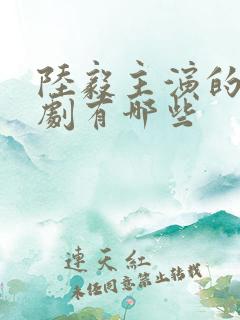 陸毅主演的
劇有哪些
連天紅
未经同意禁止转载